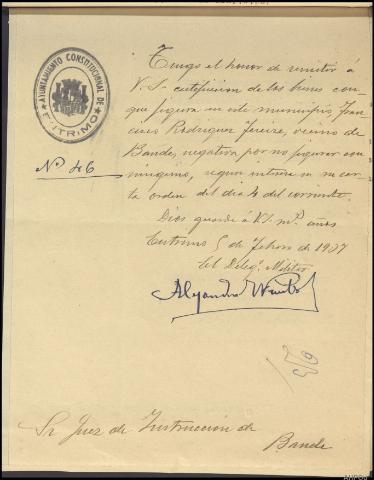 AYUNTAMIENTO CONSTITUCIONAL DE
ENTRIMO
Nº 46
Tengo el honor de remitir á
V.S. certificacion de los bienes con
que figura en este municipio, Fran
cisco Rodriguez Freire, vecino de
Bande, negativa por no figurar con
ninguno, segun interesa en su car
ta orden del dia 4 del corriente.
Dios guarde á V.S. mˢ años
Entrimo 5 de Febro de 1937
El Delegº Militar
Alejandro
Sr Juez de Instrucción de
Bande